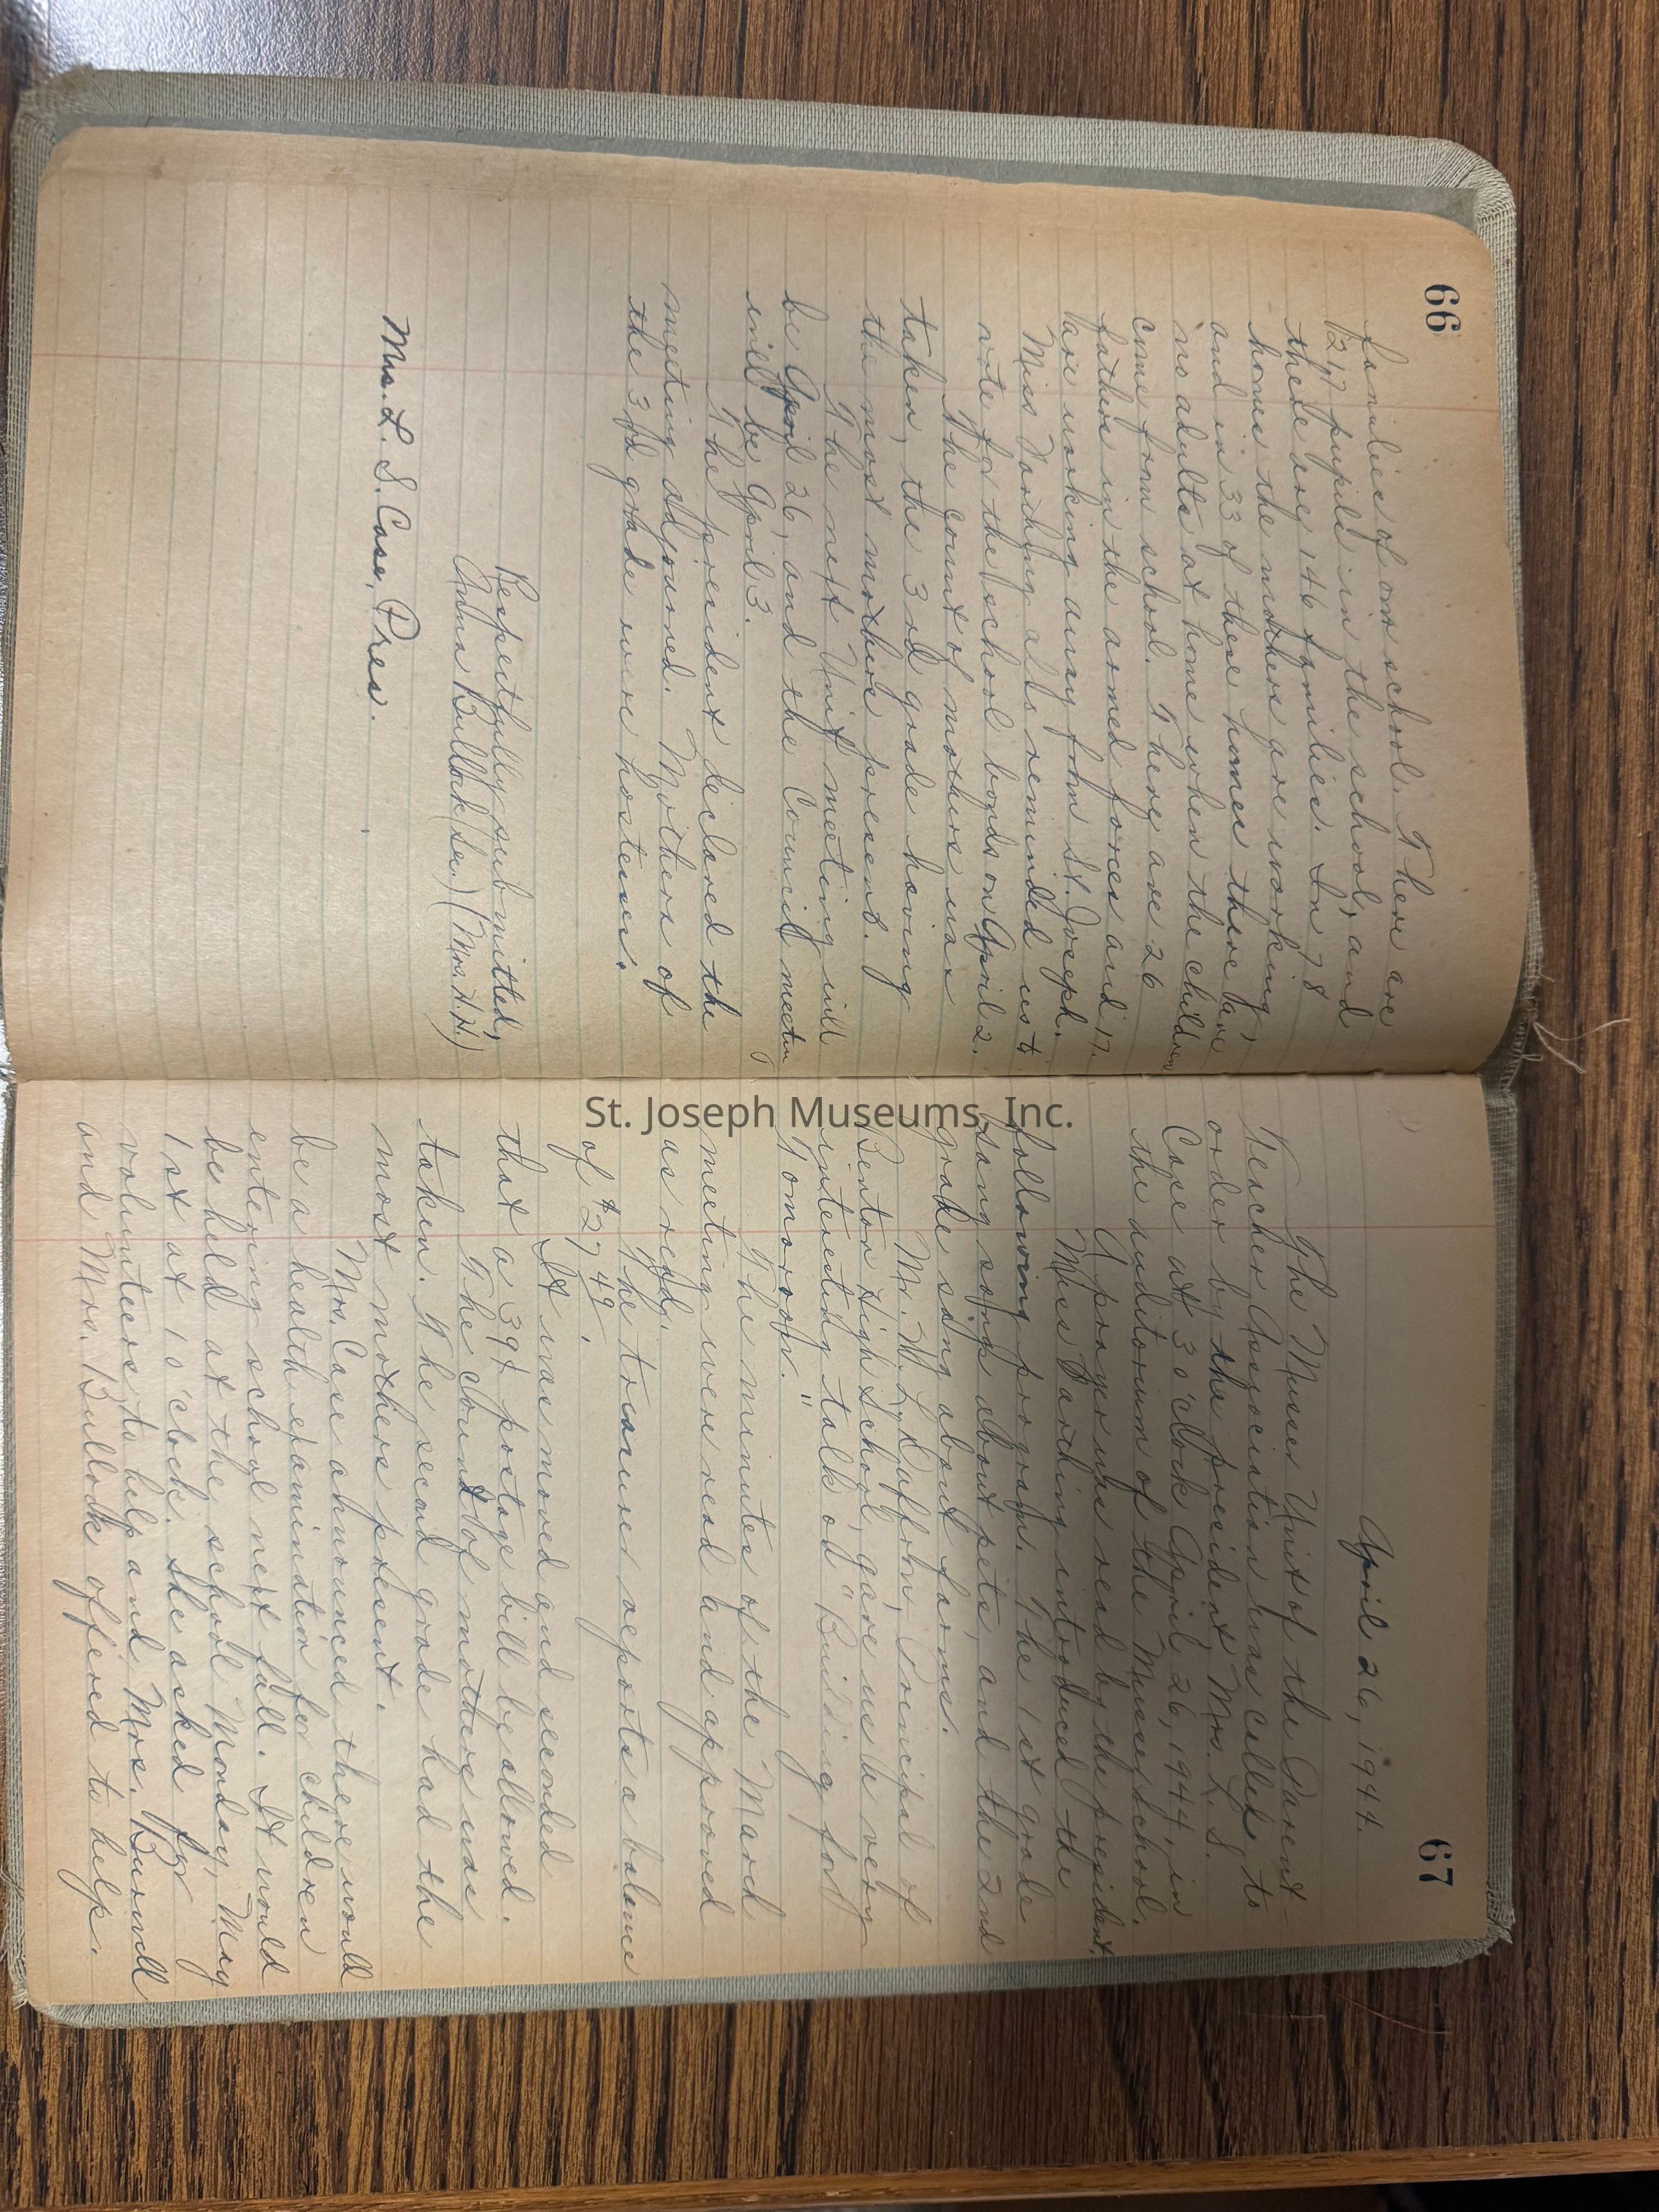 66
families of our school. There are
217 pupils in the school, and
there are 146 families. In 78
homes the mothers are working,
and in 33 of these homes there are
no adults at home when the children
come from school. There are 26
fathers in the armed forces and 17
are working away from St. Joseph.
Miss Farthing also reminded us to
vote for the school bonds on April 2.
The count of mothers was
taken, the 3rd grade having
the most mothers present.
The next Unit meeting will
be April 26, and the Council meetin
g
will be April 3.
The president declared the
meeting adjourned. Mothers of
the 3rd grade were hostesses.
Respectfully submitted,
Anna Bullock (Sec.) (Mrs. H.H.)
Mrs. L. S. Case, Pres.
67
April 26, 1944.
The Musser Unit of the Parent-
Teacher Association was called to
order by the president, Mrs. L. S.
Case at 3 o'clock April 26, 1944, in
the auditorium of the Musser School.
A prayer was read by the president.
Miss Farthing introduced the
following program. The 1st grade
sang songs about pets, and the 2nd
grade sang about farms.
Mr. W. L. Daffron, Principal of
Benton High School, gave us a very
interesting talk on "Building for
Tomorrow."
The minutes of the March
meeting were read and approved
as read.
The treasurer reports a balance
of $27.49.
It was moved and seconded
that a 39¢ postage bill be allowed.
The count of mothers was
taken. The second grade had the
most mothers present.
Mrs. Case announced there would
be a health examination for children
entering school next fall. It would
be held at the school Monday, May
1st at 1 o'clock. She asked for
volunteers to help and Mrs. Burwell
and Mrs. Bullock offered to help.
St. Joseph Museums, Inc.